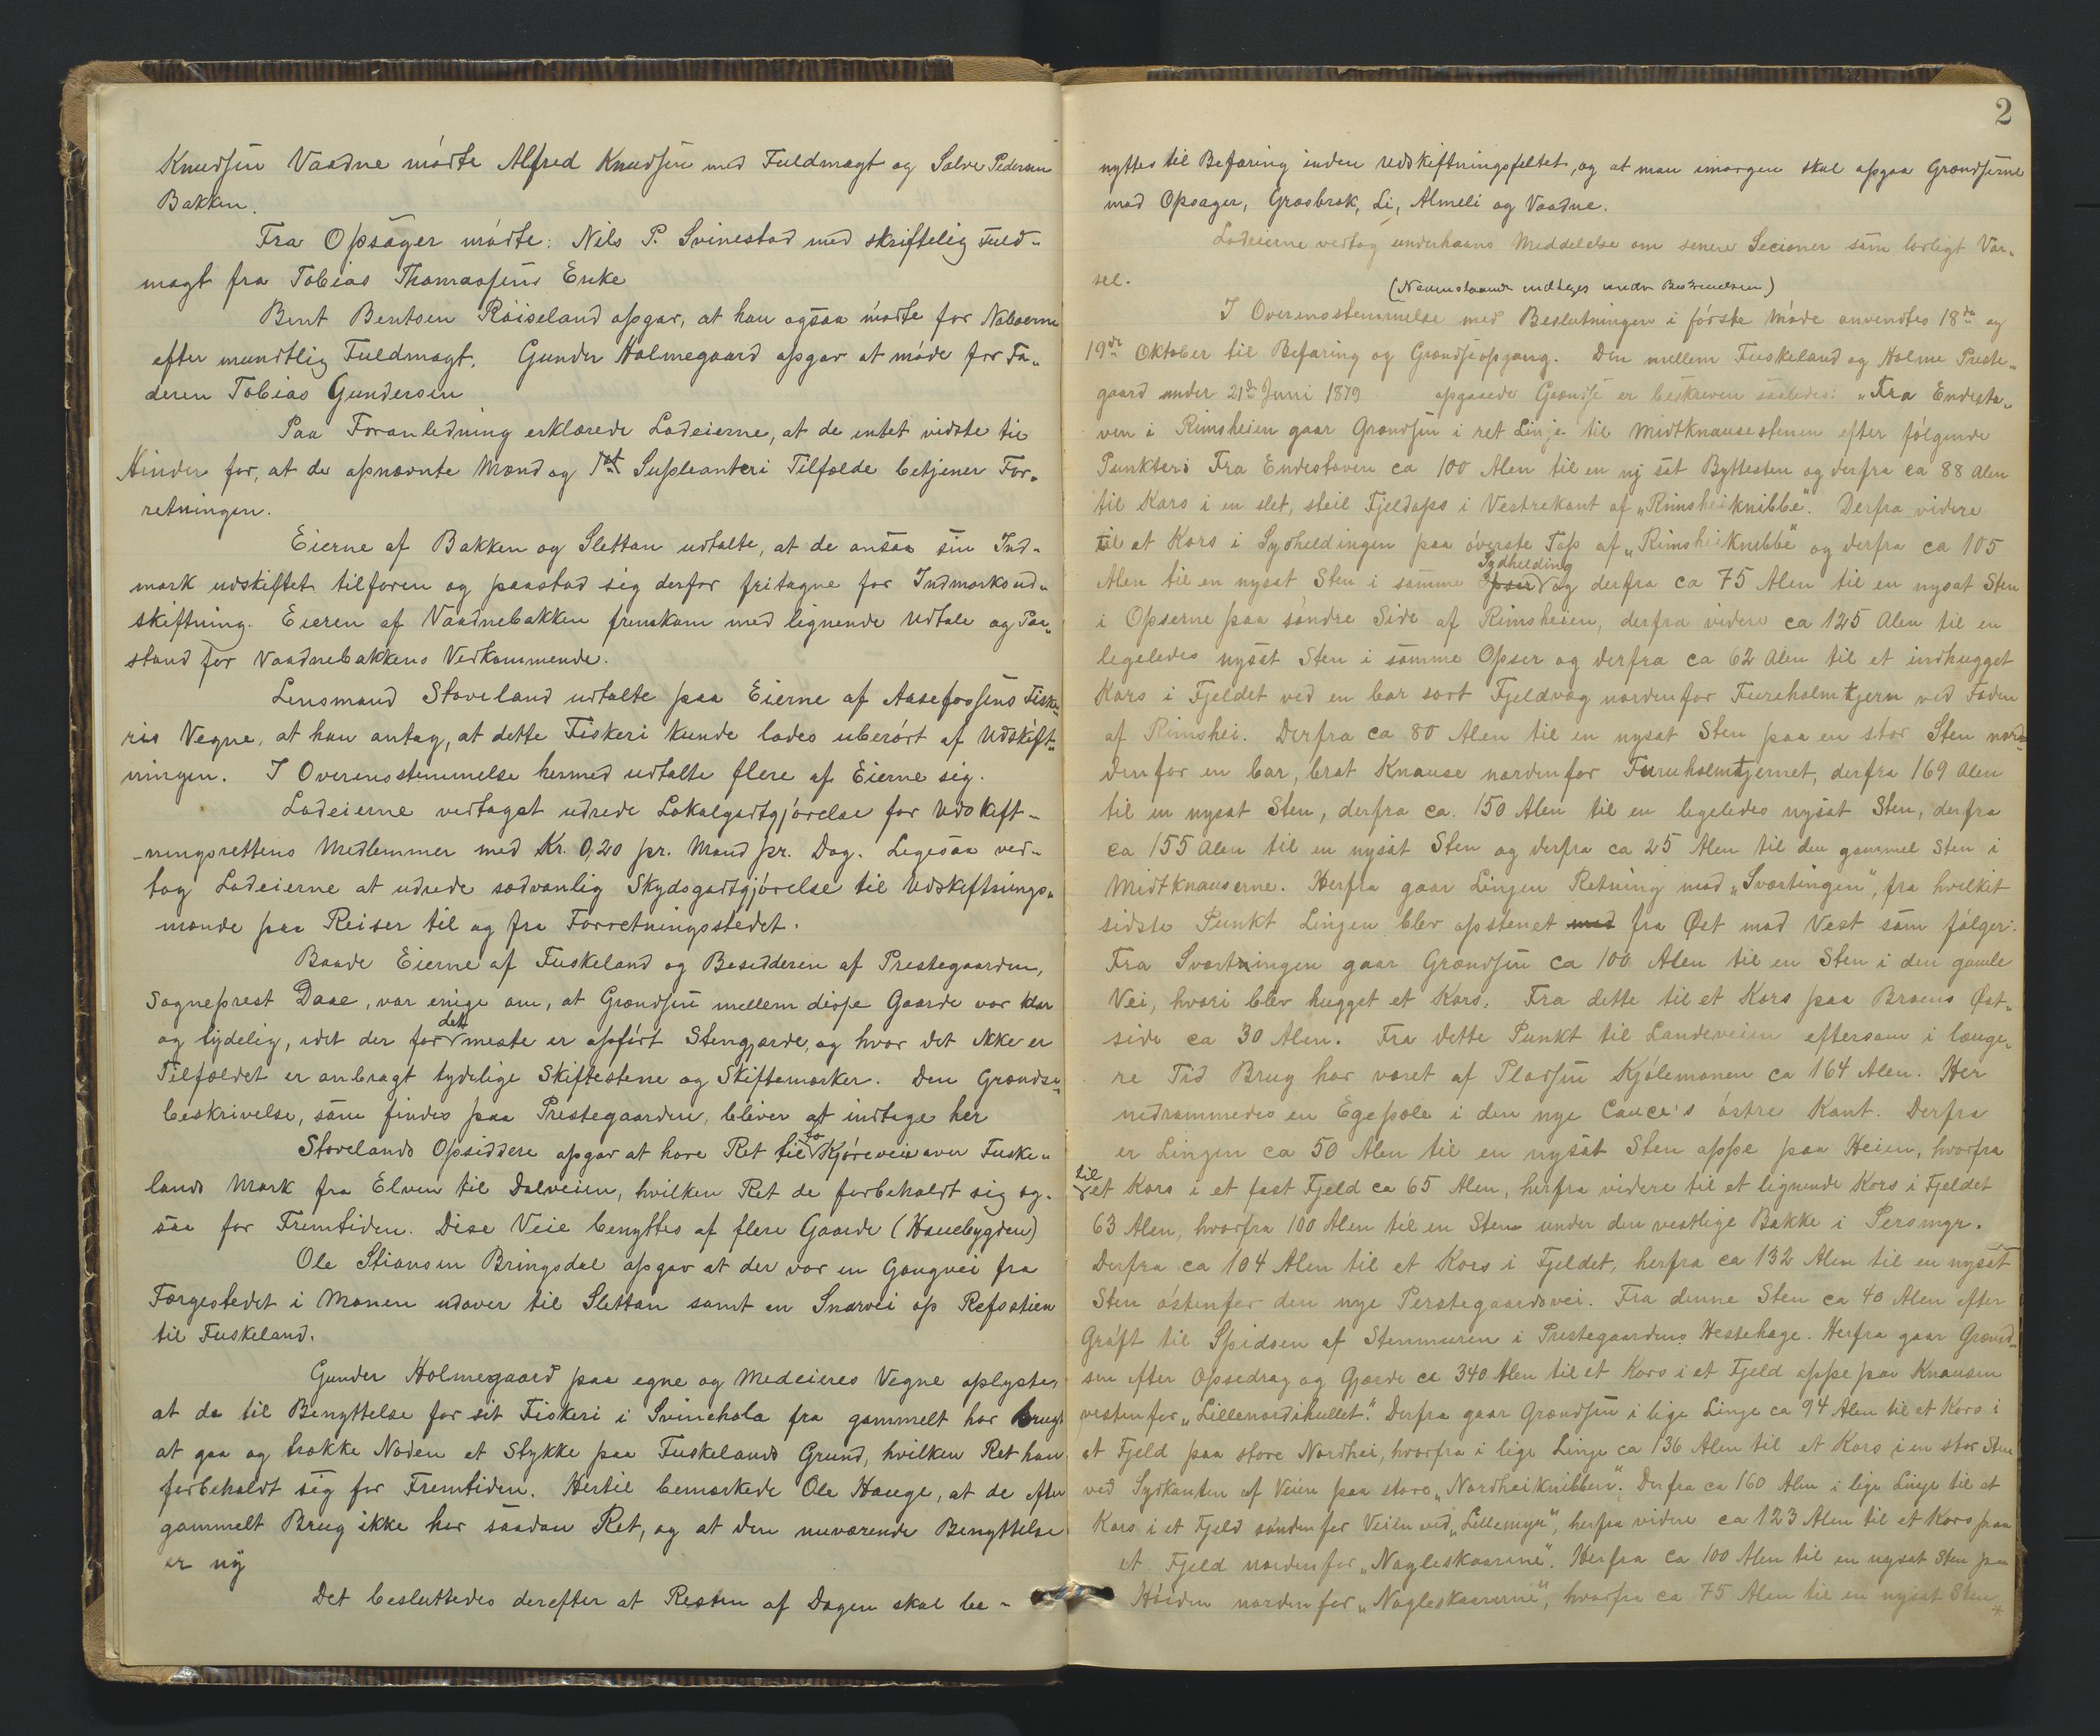 Knudsen Vaadne mødte Alfred Knudsen med Fuldmagt og Salve Pedersen
Bakken.
Fra Opsager mødte: Nils P. Svinestad med skriftelig Fuld-
magt fra Tobias Thomassens Enke
Bent Bentsen Røiseland opgav, at han ogsaa mødte for Naboerne
efter mundtlig Fuldmagt. Gunder Holmegaard opgav at møde for Fa-
deren Tobias Gundersen
Paa Foranledning erklærede Lodeierne, at de intet vidste til
Hinder for, at de opnævnte Mænd og 1st Supleanter i Tilfælde betjener For-
retningen.
Eierne af Bakken og Slettan udtalte, at de ansaa sin Ind-
mark udskiftet tilforen og paastod sig derfor fritagne for Indmarksud-
skiftning. Eieren af Vaadnebakken fremkom med lignende Udtale og Paa-
stand for Vaadnebakkens Vedkommende.
Lensmand Stoveland udtalte paa Eierne af Aasefossens Fiske-
ris Vegne, at han antog, at dette Fiskeri kunde lades uberørt af Udskift-
ningen. I Overensstemmelse hermed udtalte flere af Eierne sig.
Lodeierne vedtaget udrede Lokalgodtgjørelse for Udskift-
-ningsrettens Medlemmer med Kr. 0,20 pr. Mand pr. Dag. Ligesaa ved-
tog Lodeierne at udrede sædvanlig Skydsgodtgjørelse til Udskiftnings-
mænde paa Reiser til og fra Forretningsstedet.
Baade Eierne af Fuskeland og Besidderen af Prestegaarden,
Sogneprest Daae, var enige om, at Grændsen mellem disse Gaarde var klar
og tydelig, idet der for det meste er opført Stengjærde, og hvor det ikke er
Tilfældet er anbragt tydelige Skiftestene og Skiftemærker. Den Grændse-
beskrivelse, som findes paa Prestegaarden, bliver at indtage her
Stovelands Opsiddere opgav at have Ret til to Kjøreveie over Fuske-
lands Mark fra Elven til Dalveien, hvilken Ret de forbeholdt sig og-
saa for Fremtiden. Disse Veie benyttes af flere Gaarde (Hauebygden)
Ole Stiansen Bringsdal opgav at der var en Gangvei fra
Færgestedet i Monen udover til Slettan samt en Snarvei op Refsstien
til Fuskeland.
Gunder Holmegaard paa egne og Medeieres Vegne oplyste,
at de til Benyttelse for sit Fiskeri i Svinehola fra gammelt har brugt
at gaa og trække Noden et Stykke paa Fuskelands Grund, hvilken Ret han
forbeholdt sig for Fremtiden. Hertil bemærkede Ole Hauge, at de efter
gammelt Brug ikke har saadan Ret, og at den nuværende Benyttelse
er ny
Det besluttedes derefter at Resten af Dagen skal be-
2
nyttes til Befaring inden Udskiftningsfeltet, og at man imorgen skal opgaa Grændserne
mod Opsager, Græsbrok, Li, Almeli og Vaadne.
Lodeierne vedtog underhaans Meddelelse om senere Secioner som lovligt Var-
sel.
(Nedenstaaende indtages under Beskrivelsen)
I Overensstemmelse med Beslutningen i første Møde anvendtes 18de og
19de Oktober til Befaring og Grændseopgang. Den mellem Fuskeland og Holme Preste-
gaard under 21de Juni 1879 opgaaede Grændse er beskreven saaledes: „Fra Endesta-
ven i Rimsheien gaar Grændsen i ret Linje til Midtknausestenen efter følgende
Punkter: Fra Endestaven ca 100 Alen til en ny sat Byttesten og derfra ca 88 Alen
til Kors i en slet, steil Fjeldops i Vestrekant af „Rimsheiknibbe“. Derfra videre
til et Kors i Sydheldingen paa øverste Top af „Rimsheiknibbe“ og derfra ca 105
Alen til en nysat Sten i samme Opser Sydhelding og derfra ca 75 Alen til en nysat Sten
i Opserne paa søndre Side af Rimsheien, derfra videre ca 125 Alen til en
ligeledes nysat Sten i samme Opser og derfra ca 62 Alen til et indhugget
Kors i Fjeldet ved en bar sort Fjeldvæg nordenfor Fureholmtjern ved Foden
af Rimshei. Derfra ca 80 Alen til en nysat Sten paa en stor Sten nor-
denfor en bar, brat Knause nordenfor Fureholmtjernet, derfra 169 Alen
til en nysat Sten, derfra ca. 150 Alen til en ligeledes nysat Sten, derfra
ca 155 Alen til en nysat Sten og derfra ca 25 Alen til den gammel Sten i
Midtknauserne. Herfra gaar Linjen Retning mod „Sværtingen“, fra hvilket
sidste Punkt Linjen blev opstenet med fra Øst mod Vest som følger:
Fra Sværtningen gaar Grændsen ca 100 Alen til en Sten i den gamle
Vei, hvori blev hugget et Kors. Fra dette til et Kors paa Broens Øst-
side ca 30 Alen. Fra dette Punkt til Landeveien eftersom i længe-
re Tid Brug har været af Pladsen Kjølemonen ca 164 Alen. Her
nedrammedes en Egepæle i den nye Cauce's østre Kant. Derfra
er Linjen ca 50 Alen til en nysat Sten oppe paa Heien, hvorfra
til et Kors i et fast Fjeld ca 65 Alen, herfra videre til et lignende Kors i Fjeldet
63 Alen, hvorfra 100 Alen til en Sten under den vestlige Bakke i Persmyr.
Derfra ca 104 Alen til et Kors i Fjeldet, herfra ca 132 Alen til en nysat
Sten østenfor den nye Perstegaardsvei. Fra denne Sten ca 40 Alen efter
Grøft til Spidsen af Stenmuren i Prestegaardens Hestehage. Herfra gaar Grænd-
sen efter Opsedrag og Gjærde ca 340 Alen til et Kors i et Fjeld oppe paa Knausen
vestenfor „Lillenordshullet“. Derfra gaar Grændsen i lige Linje ca 94 Alen til et Kors i
et Fjeld paa store Nordhei, hvorfra i lige Linje ca 136 Alen til et Kors i en stor Sten
ved Sydkanten af Veien paa store „Nordheiknibben“. Derfra ca 160 Alen i lige Linje til et
Kors i et Fjeld søndenfor Veien ved „Lillemyr“, herfra videre ca 123 Alen til et Kors paa
et Fjeld nordenfor „Nagleskaarene“. Herfra ca 100 Alen til en nysat Sten paa
Høiden nordenfor „Nagleskaarerne“, hvorfra ca 75 Alen til en nysat Sten*